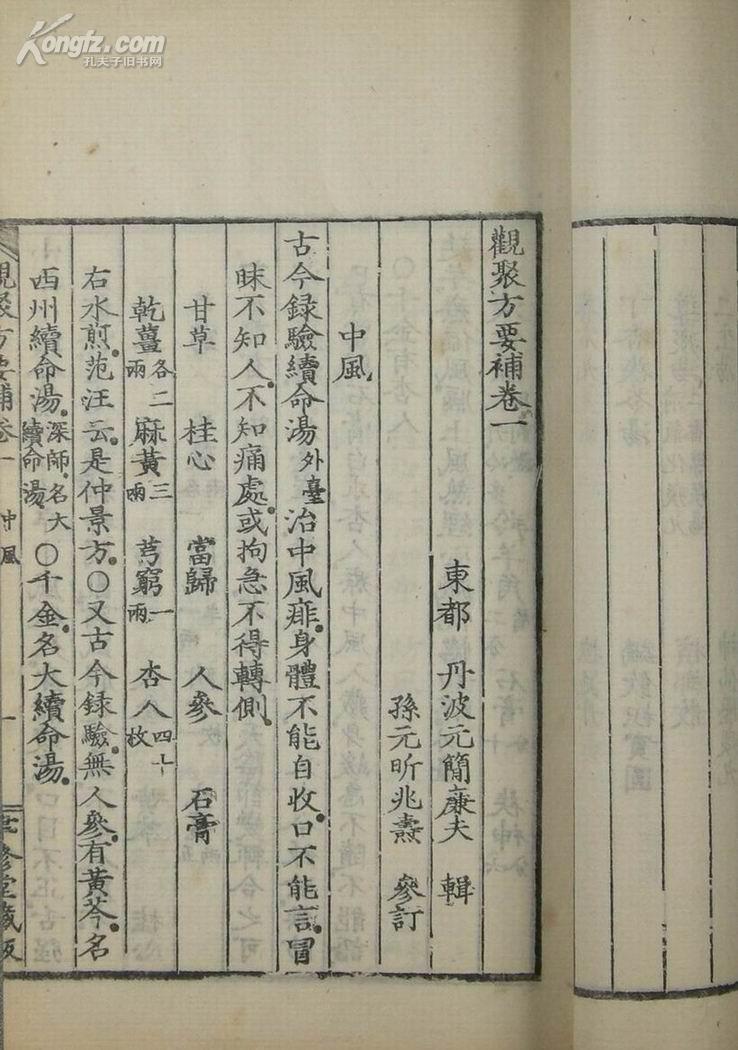 Kongfz.com
孔夫子旧书网
觀聚方要補卷一
東都 丹波元簡廉夫 輯
孫元昕兆燾 參訂
中風
古今録驗續命湯外臺治中風痱身體不能自收口不能言冒
昧不知人不知痛處或拘急不得轉側
甘草 桂心 當歸 人參 石膏
乾薑各二兩 麻黃三兩 芎窮一兩 杏人四十枚
右水煎范汪云是仲景方〇又古今録驗無人參有黃芩名
西州續命湯深師名大續命湯〇千金名大續命湯
觀聚方要補卷一 中風 一 聿修堂藏版